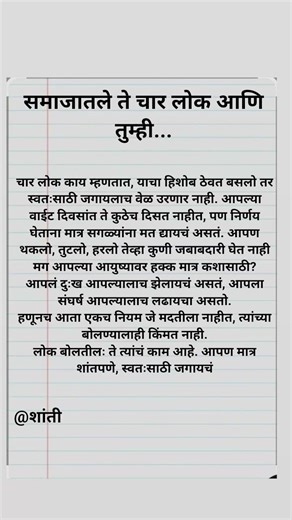 समाजातले ते चार लोक आणि
तुम्ही...
चार लोक काय म्हणतात, याचा हिशोब ठेवत बसलो तर
स्वतःसाठी जगायलाच वेळ उरणार नाही. आपल्या
वाईट दिवसांत ते कुठेच दिसत नाहीत, पण निर्णय
घेताना मात्र सगळ्यांना मत द्यायचं असतं. आपण
थकलो, तुटलो, हरलो तेव्हा कुणी जबाबदारी घेत नाही
मग आपल्या आयुष्यावर हक्क मात्र कशासाठी?
आपलं दुःख आपल्यालाच झेलायचं असतं, आपला
संघर्ष आपल्यालाच लढायचा असतो.
हणूनच आता एकच नियम जे मदतीला नाहीत, त्यांच्या
बोलण्यालाही किंमत नाही.
लोक बोलतीलः ते त्यांचं काम आहे. आपण मात्र
शांतपणे, स्वतःसाठी जगायचं
@शांती